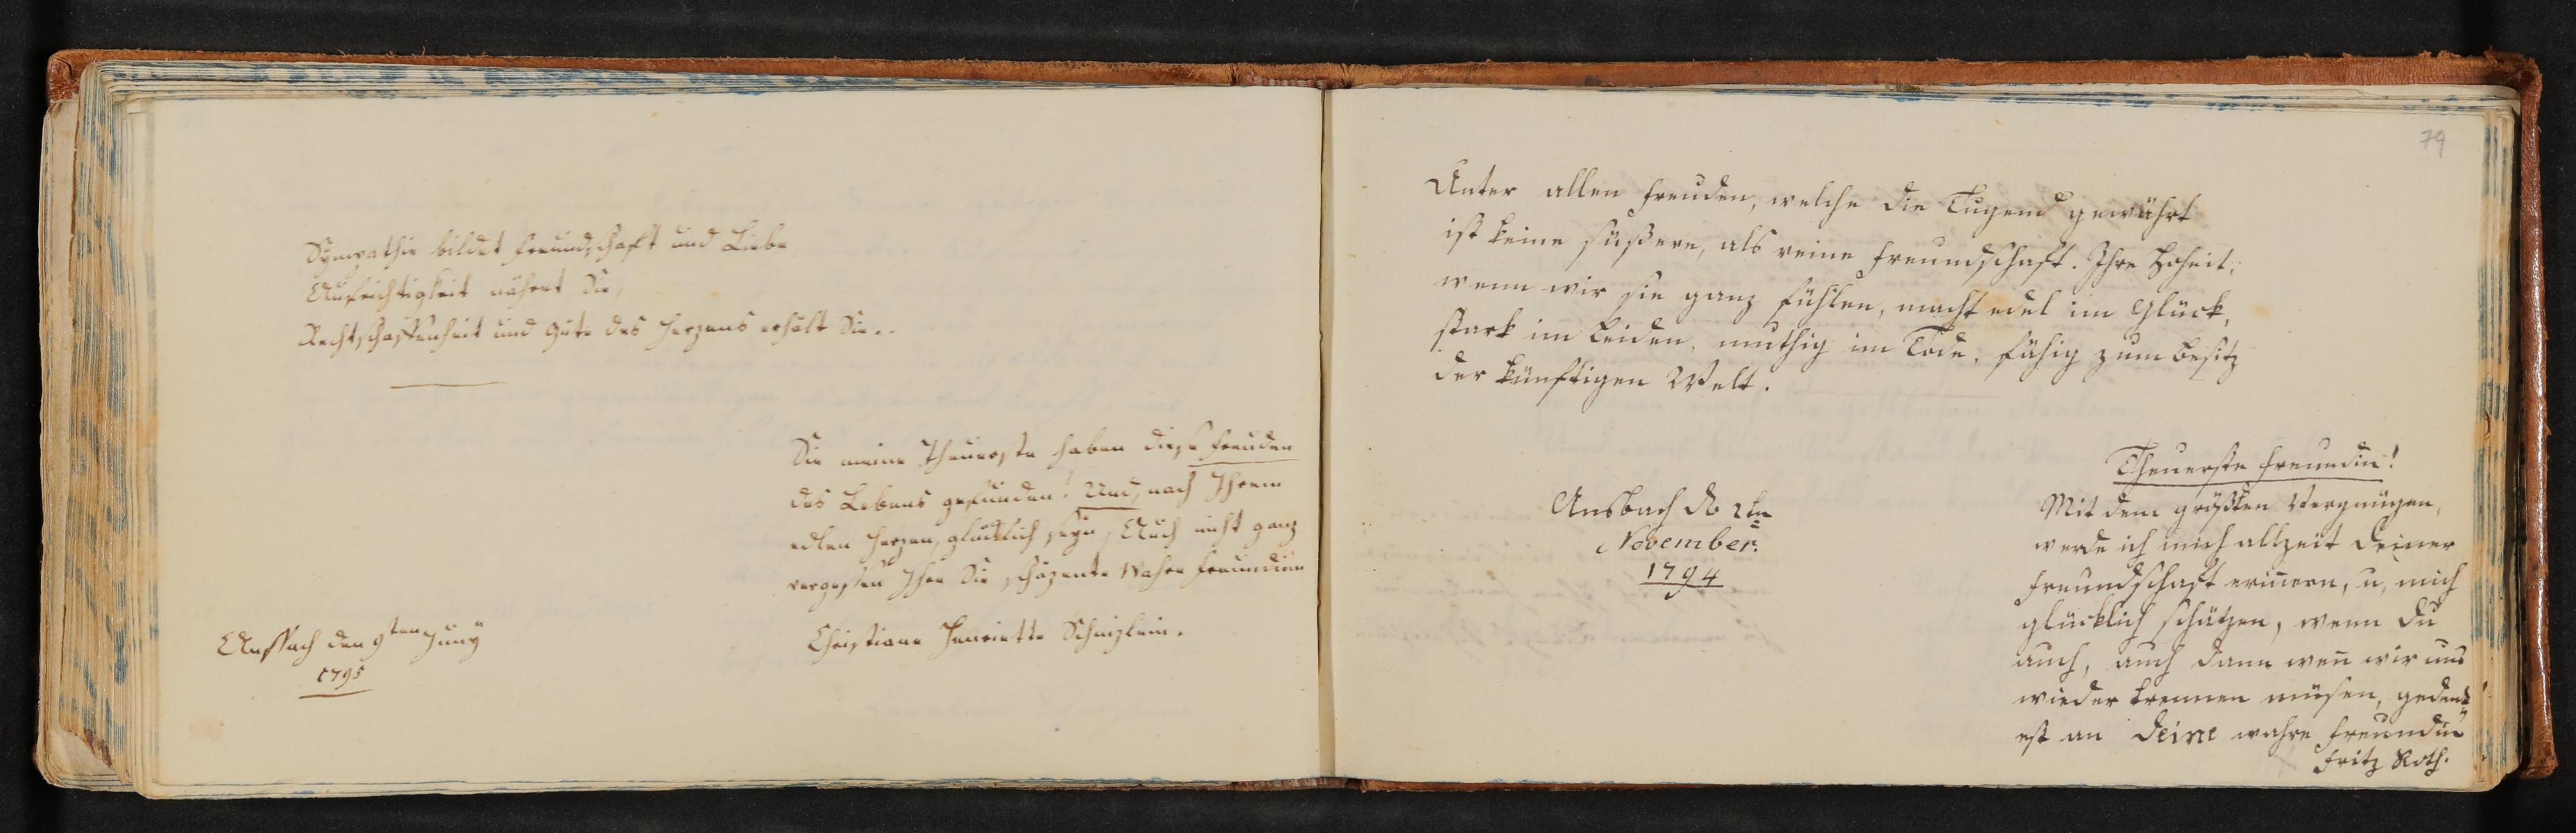 Sympathie bildet Freundschaft und Liebe
Aufrichtigkeit nährt Sie,
Rechtschaffenheit und Güte des Herzens erhält Sie..
Sie meine Theuerste haben diese Freuden
des Lebens gefunden! Und, nach Ihrem
edlen Herzen, glücklich seyn, Auch nicht ganz
vergessen Ihre Sie schäzente Wahre Freundinn
Christiane Henriette Schnizlein.
Anspach den 9ten Juny
1795
79
Unter allen Freuden, welche die Tugend gewährt
ist keine süßere, als reine Freundschaft. Ihre Hoheit,
wenn wir sie ganz fühlen, macht edel im Glück,
stark im Leiden, muthig im Tode, fähig zum Besitz
der künftigen Welt.
Ansbach d. 2tn
November.
1794
Theuerste Freundin!
Mit dem größten Vergnügen,
werde ich mich allzeit Deiner
Freundschaft erinnern, u, mich
glücklich schätzen, wenn Du
auch, auch dann wen̄ wir uns
wieder trennen müsen, gedenk
est an Deine wahre Freundin
Fritz Roth.